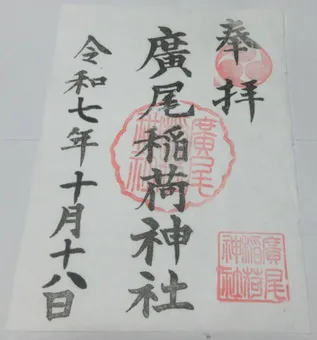 奉拝
廣尾稲荷神社
令和七年十月十八日
廣尾
稲荷
神社